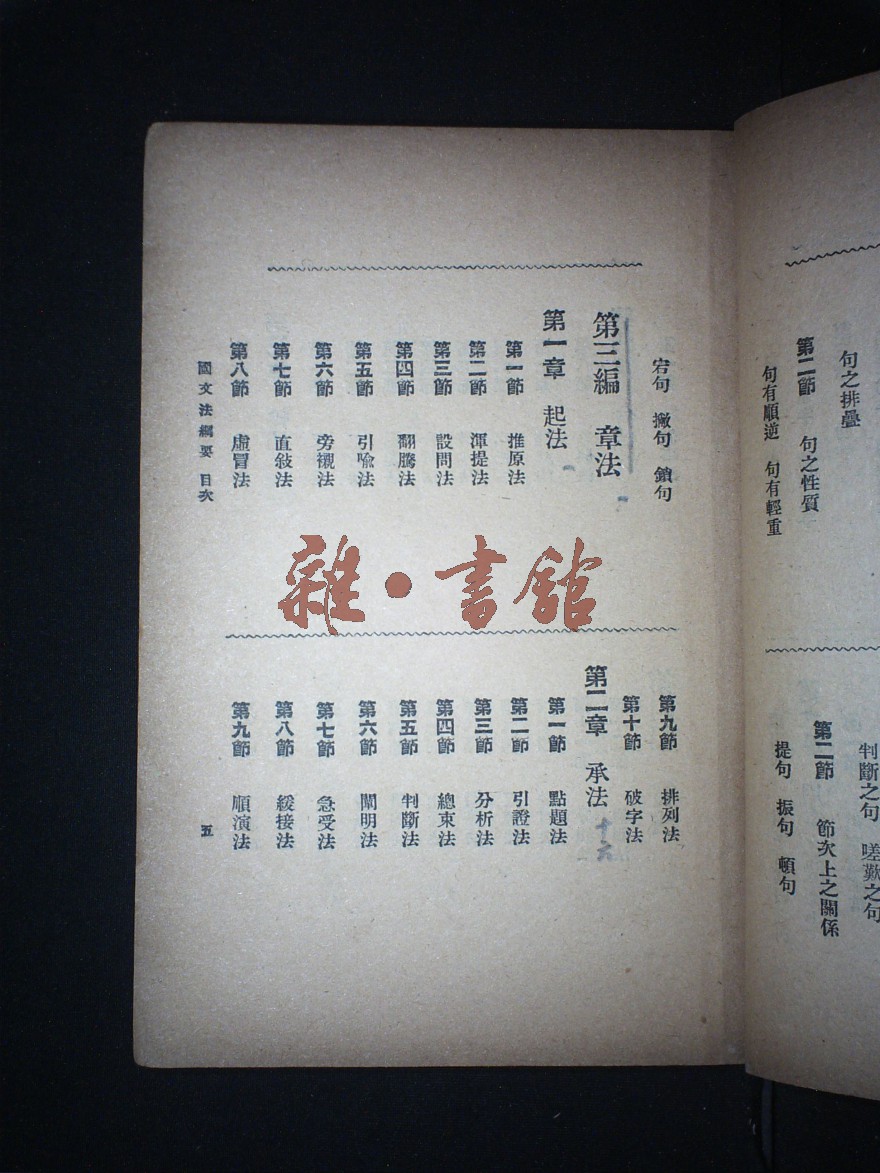 句之排疊
第二節 句之性質
句有順逆 句有輕重
判斷之句 嗟歎之句
第二節 節次上之關係
提句 振句 頓句
宕句 撇句 鎖句
第三編 章法
第一章 起法
第一節 推原法
第二節 渾提法
第三節 設問法
第四節 翻騰法
第五節 引喩法
第六節 旁襯法
第七節 直敍法
第八節 虛冒法
國文法綱要 目次
第九節 排列法
第十節 破字法
第二章 承法 十六
第一節 點題法
第二節 引證法
第三節 分析法
第四節 總束法
第五節 判斷法
第六節 闡明法
第七節 急受法
第八節 緩接法
第九節 順演法
五
雜·書館